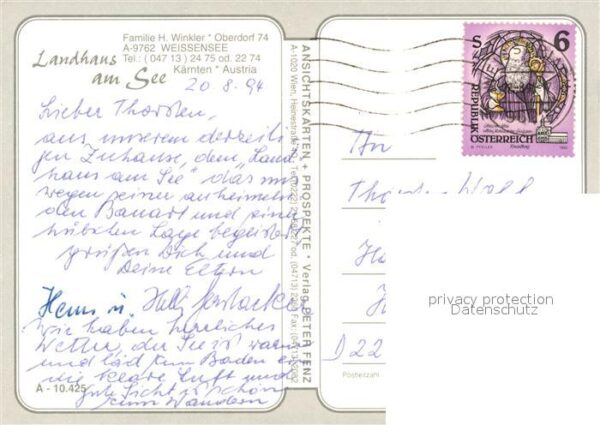 Familie H. Winkler * Oberdorf 74
A-9762 WEISSENSEE
Tel.: (047 13) 24 75 od. 22 74
Kärnten * Austria
Landhaus
am See
20.8.94
Lieber Thorsten,
aus unserem derzeiti-
gen Zuhause, dem "Land
haus am See" das uns
wegen seiner anheimeln
den Bauart und seiner
hübschen Lage begeistert
grüßen Dich und
Deine Eltern
Hans u.
Wir haben herrliches
Wetter, der See ist warm
und läd zum Baden ein
die klare Luft und
gute Sicht ist schön
zum Wandern
A - 10.425
ANSICHTSKARTEN + PROSPEKTE * Verlag PETER FENZ
A-1020 Wien,
S 6
REPUBLIK
ÖSTERREICH
An
D 22
Postierzahl
privacy protection
Datenschutz